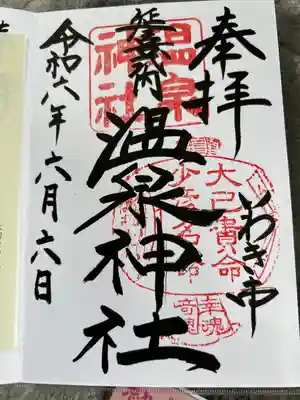 奉拝
いわき市
延喜式内
温泉神社
令和六年六月六日
温泉
神社
大己貴命
少彦名命
幸魂
奇魂